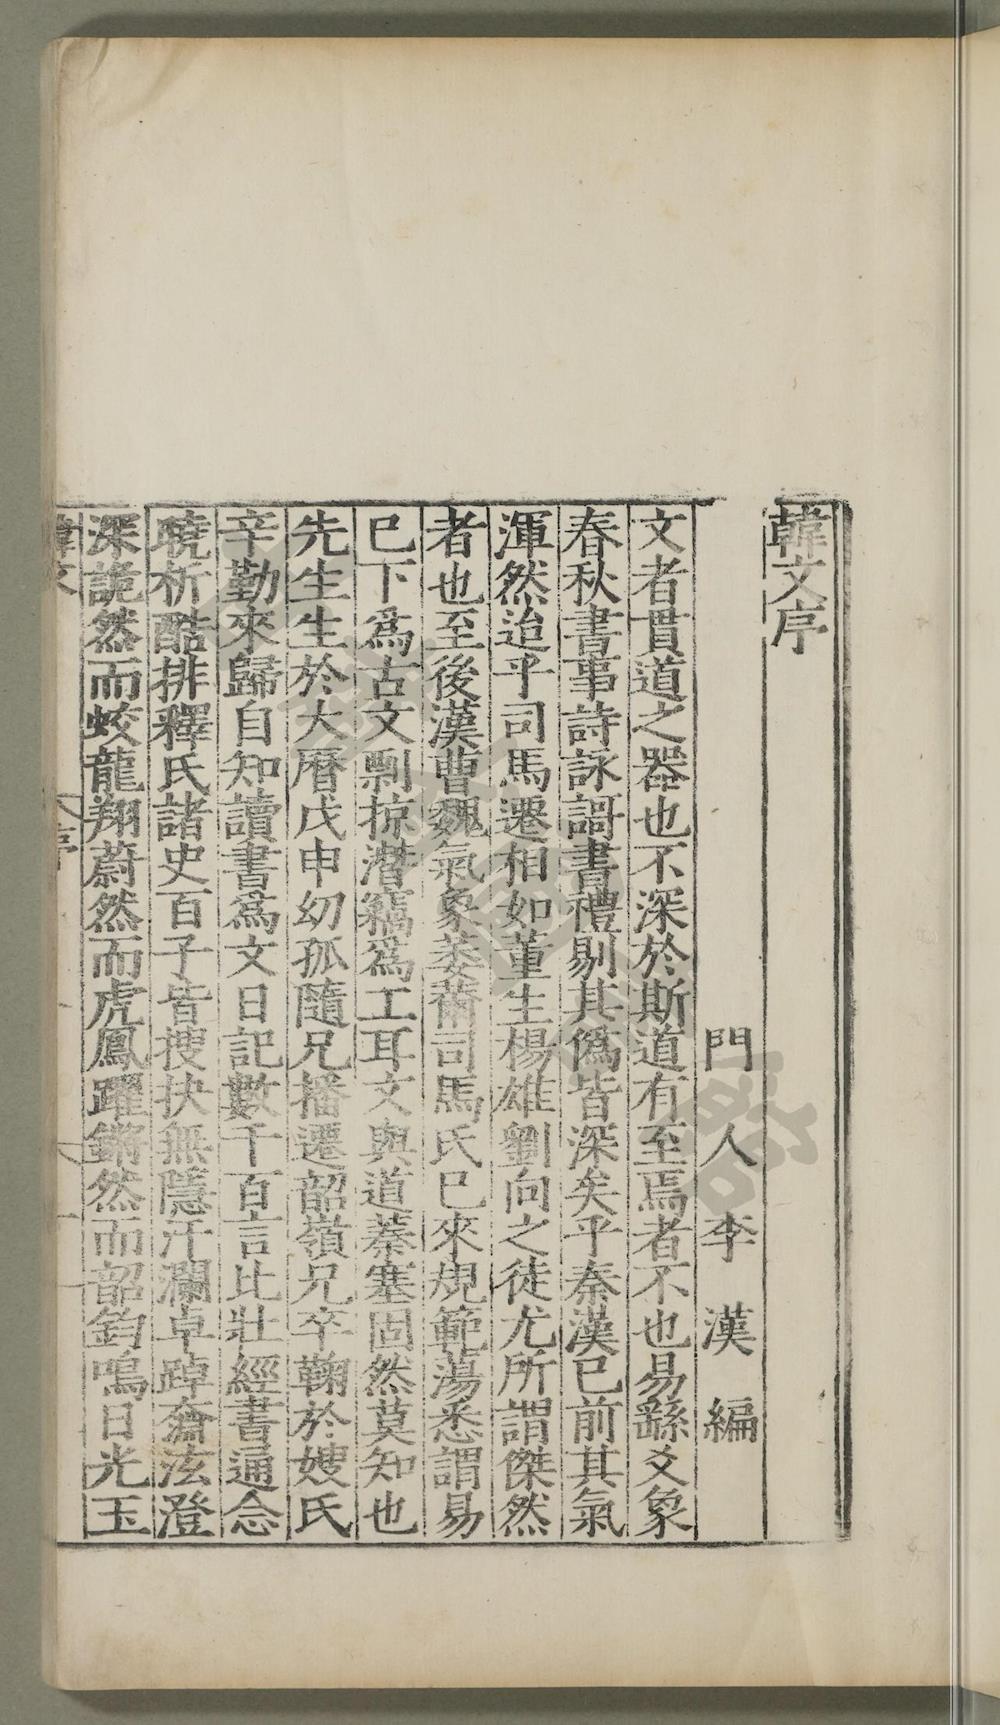 韓文序
門人李漢編
文者貫道之器也不深於斯道有至焉者不也易繇爻象
春秋書事詩詠謌書禮剔其僞皆深矣乎秦漢已前其氣
渾然迨乎司馬遷相如董生楊雄劉向之徒尤所謂傑然
者也至後漢曹魏氣象萎薾司馬氏已來規範蕩悉謂易
已下爲古文剽掠潛竊爲工耳文與道蓁塞固然莫知也
先生生於大曆戊申幼孤隨兄播遷韶嶺兄卒鞠於嫂氏
辛勤來歸自知讀書爲文日記數千百言比壯經書通念
曉析酷排釋氏諸史百子皆搜抉無隱汗瀾卓踔奫泫澄
深詭然而蛟龍翔蔚然而虎鳳躍鏘然而韶鈞鳴日光玉
韓文 序 一